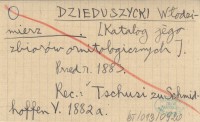 DZIEDUSZYCKI Włodzi-
mierz. [Katalog jego
zbiorów ornitologicznych].
Przed r. 1883.
Rec.: Tschusi zu Schmid-
hoffen V. 1882a.